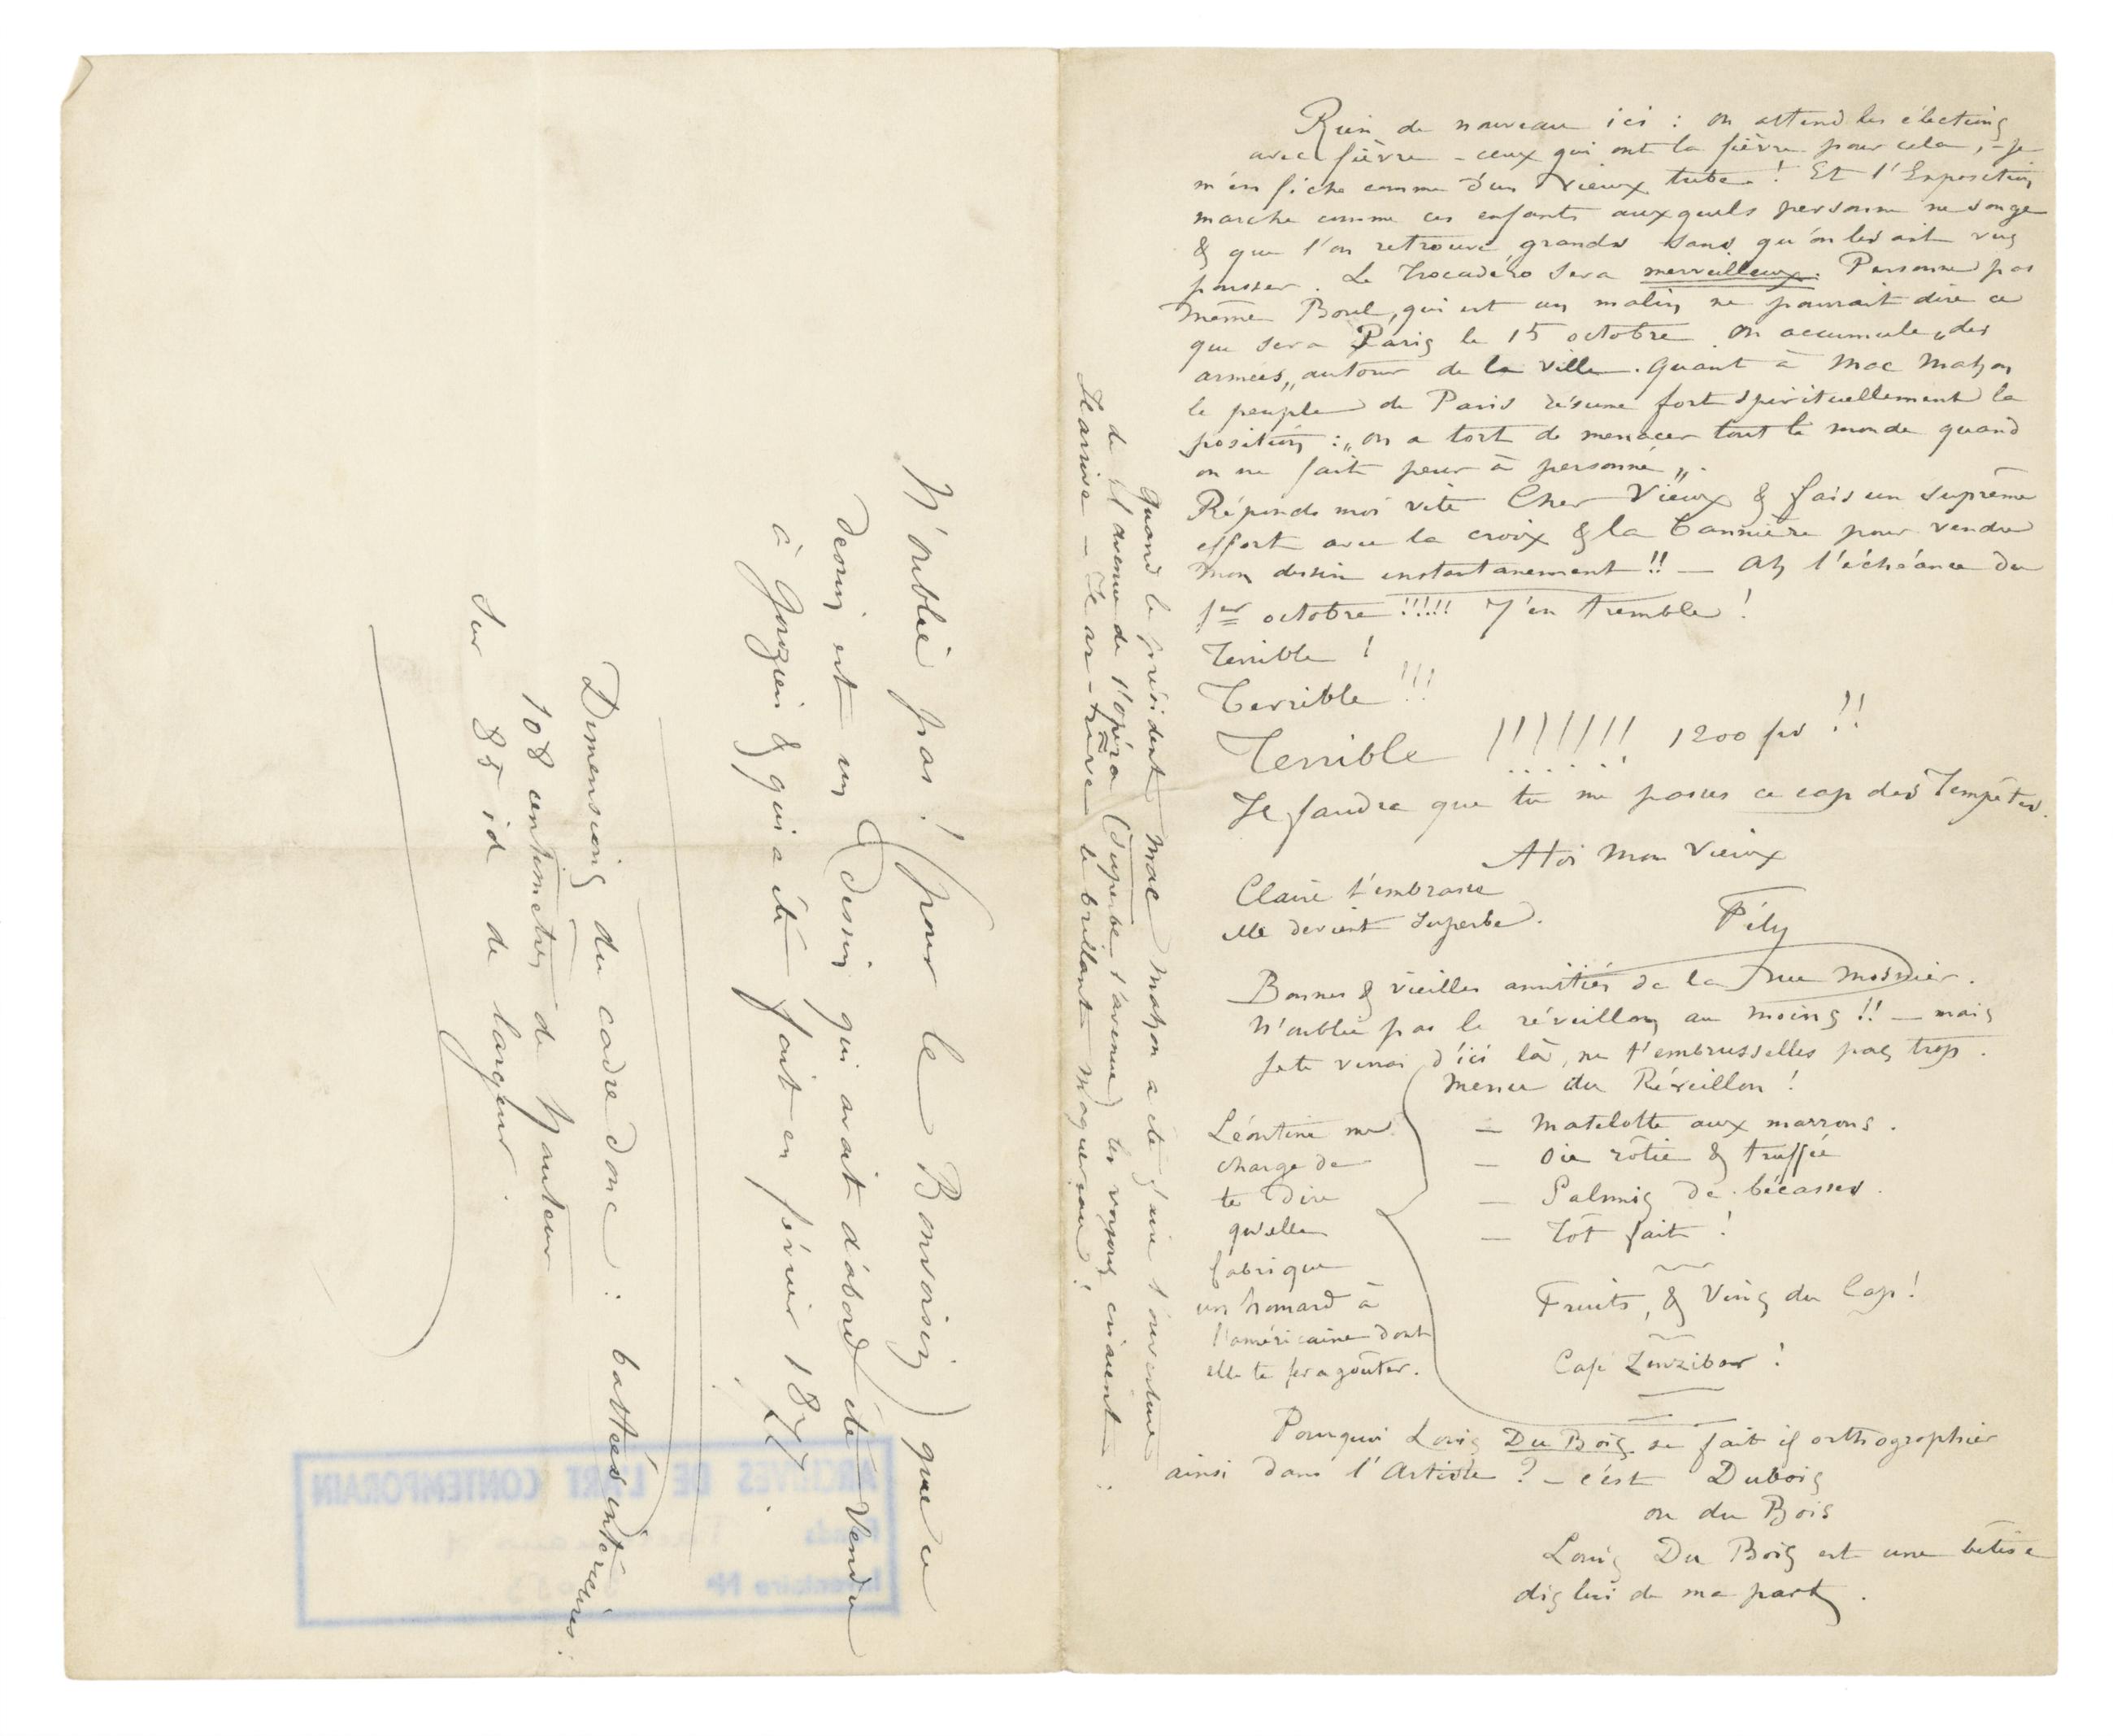 Rien de nouveau ici : on attend les élections
avec fièvre – ceux qui ont la fièvre pour cela, – je
m'en fiche comme d'un vieux tube ! Et l'Exposition
marche comme ces enfants auxquels personne ne songe
& que l'on retrouve grands sans qu'on les ait vus
pousser. Le Trocadéro sera merveilleux. Personne pas
même Borel, qui est un malin ne pourrait dire ce
que sera Paris le 15 octobre. On accumule „des
armées„ autour de la ville. Quant à Mac Mahon
le peuple de Paris résume fort spirituellement la
position : „on a tort de menacer tout le monde quand
on ne fait peur à personne„.
Réponds moi vite Cher Vieux & fais un suprême
effort avec la croix & la bannière pour vendre
mon dessin instantanement !! — Ah l'échéance du
1er octobre !!!!! J'en tremble !
Terrible !
Terrible !!!
Terrible !!!!!!! 1200 frs !!
Il faudra que tu me passes ce cap des Tempêtes.
A toi mon Vieux
Claire t'embrasse
elle devient superbe.
Fély
Bonnes & vieilles amitiés de la rue Mosnier.
N'oublie pas le réveillon au moins !! — mais
je te verrai d'ici là, ne t'embrusselles pas trop.
Menu du Réveillon !
– Matelotte aux marrons.
– Oie rôtie & truffée
– Salmis de bécasses.
– Tôt fait !
Fruits, & Vins du Cap !
Café Zanzibar !
Léontine me
charge de
te dire
qu'elle
fabrique
un homard à
l'américaine dont
elle te fera goûter.
Pourquoi Louis Du Bois se fait il orthographier
ainsi dans l'Artiste ? – c'est Dubois
ou du Bois
Louis Du Bois est une bêtise
dis lui de ma part.
Quand le président Mac Mahon a été faire l'ouverture
de l'avenue de l'opéra (superbe l'avenue) les voyous criaient :
Il arrive — Il ar-rrive le brillant Maquereau !
N'oublie pas ! (pour le Bonvoisin) que ce
dessin est un dessin qui avait d'abord été vendu
à Gouzien & qui a été fait en février 1877.
Dimensions du cadre donc : battées intérieures :
108 centimètres de hauteur
sur 85 id de largeur.
ARCHIVES DE L'ART CONTEMPORAIN
Fonds
Inventaire No